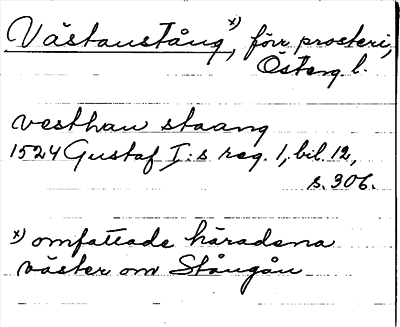 Västanstång x), förr prosteri,
Österg l.
vesthan staang
1524 Gustaf I:s reg. 1, bil. 12,
s. 306.
x) omfattade häradena
väster om Stångån